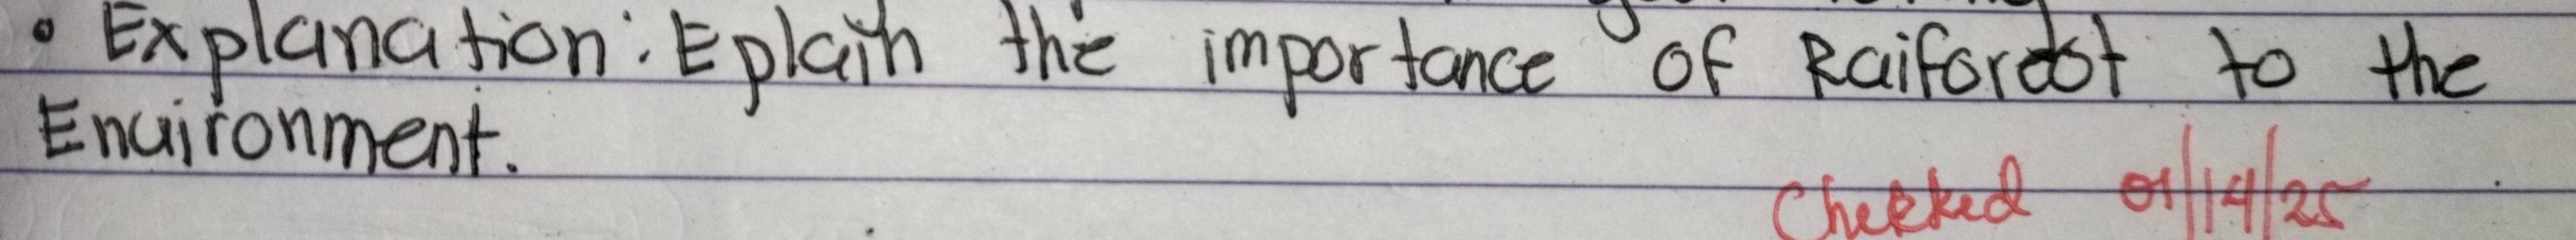 • Explanation: Eplain the importance of Raiforest to the
Enuironment.
Checked 01/14/25